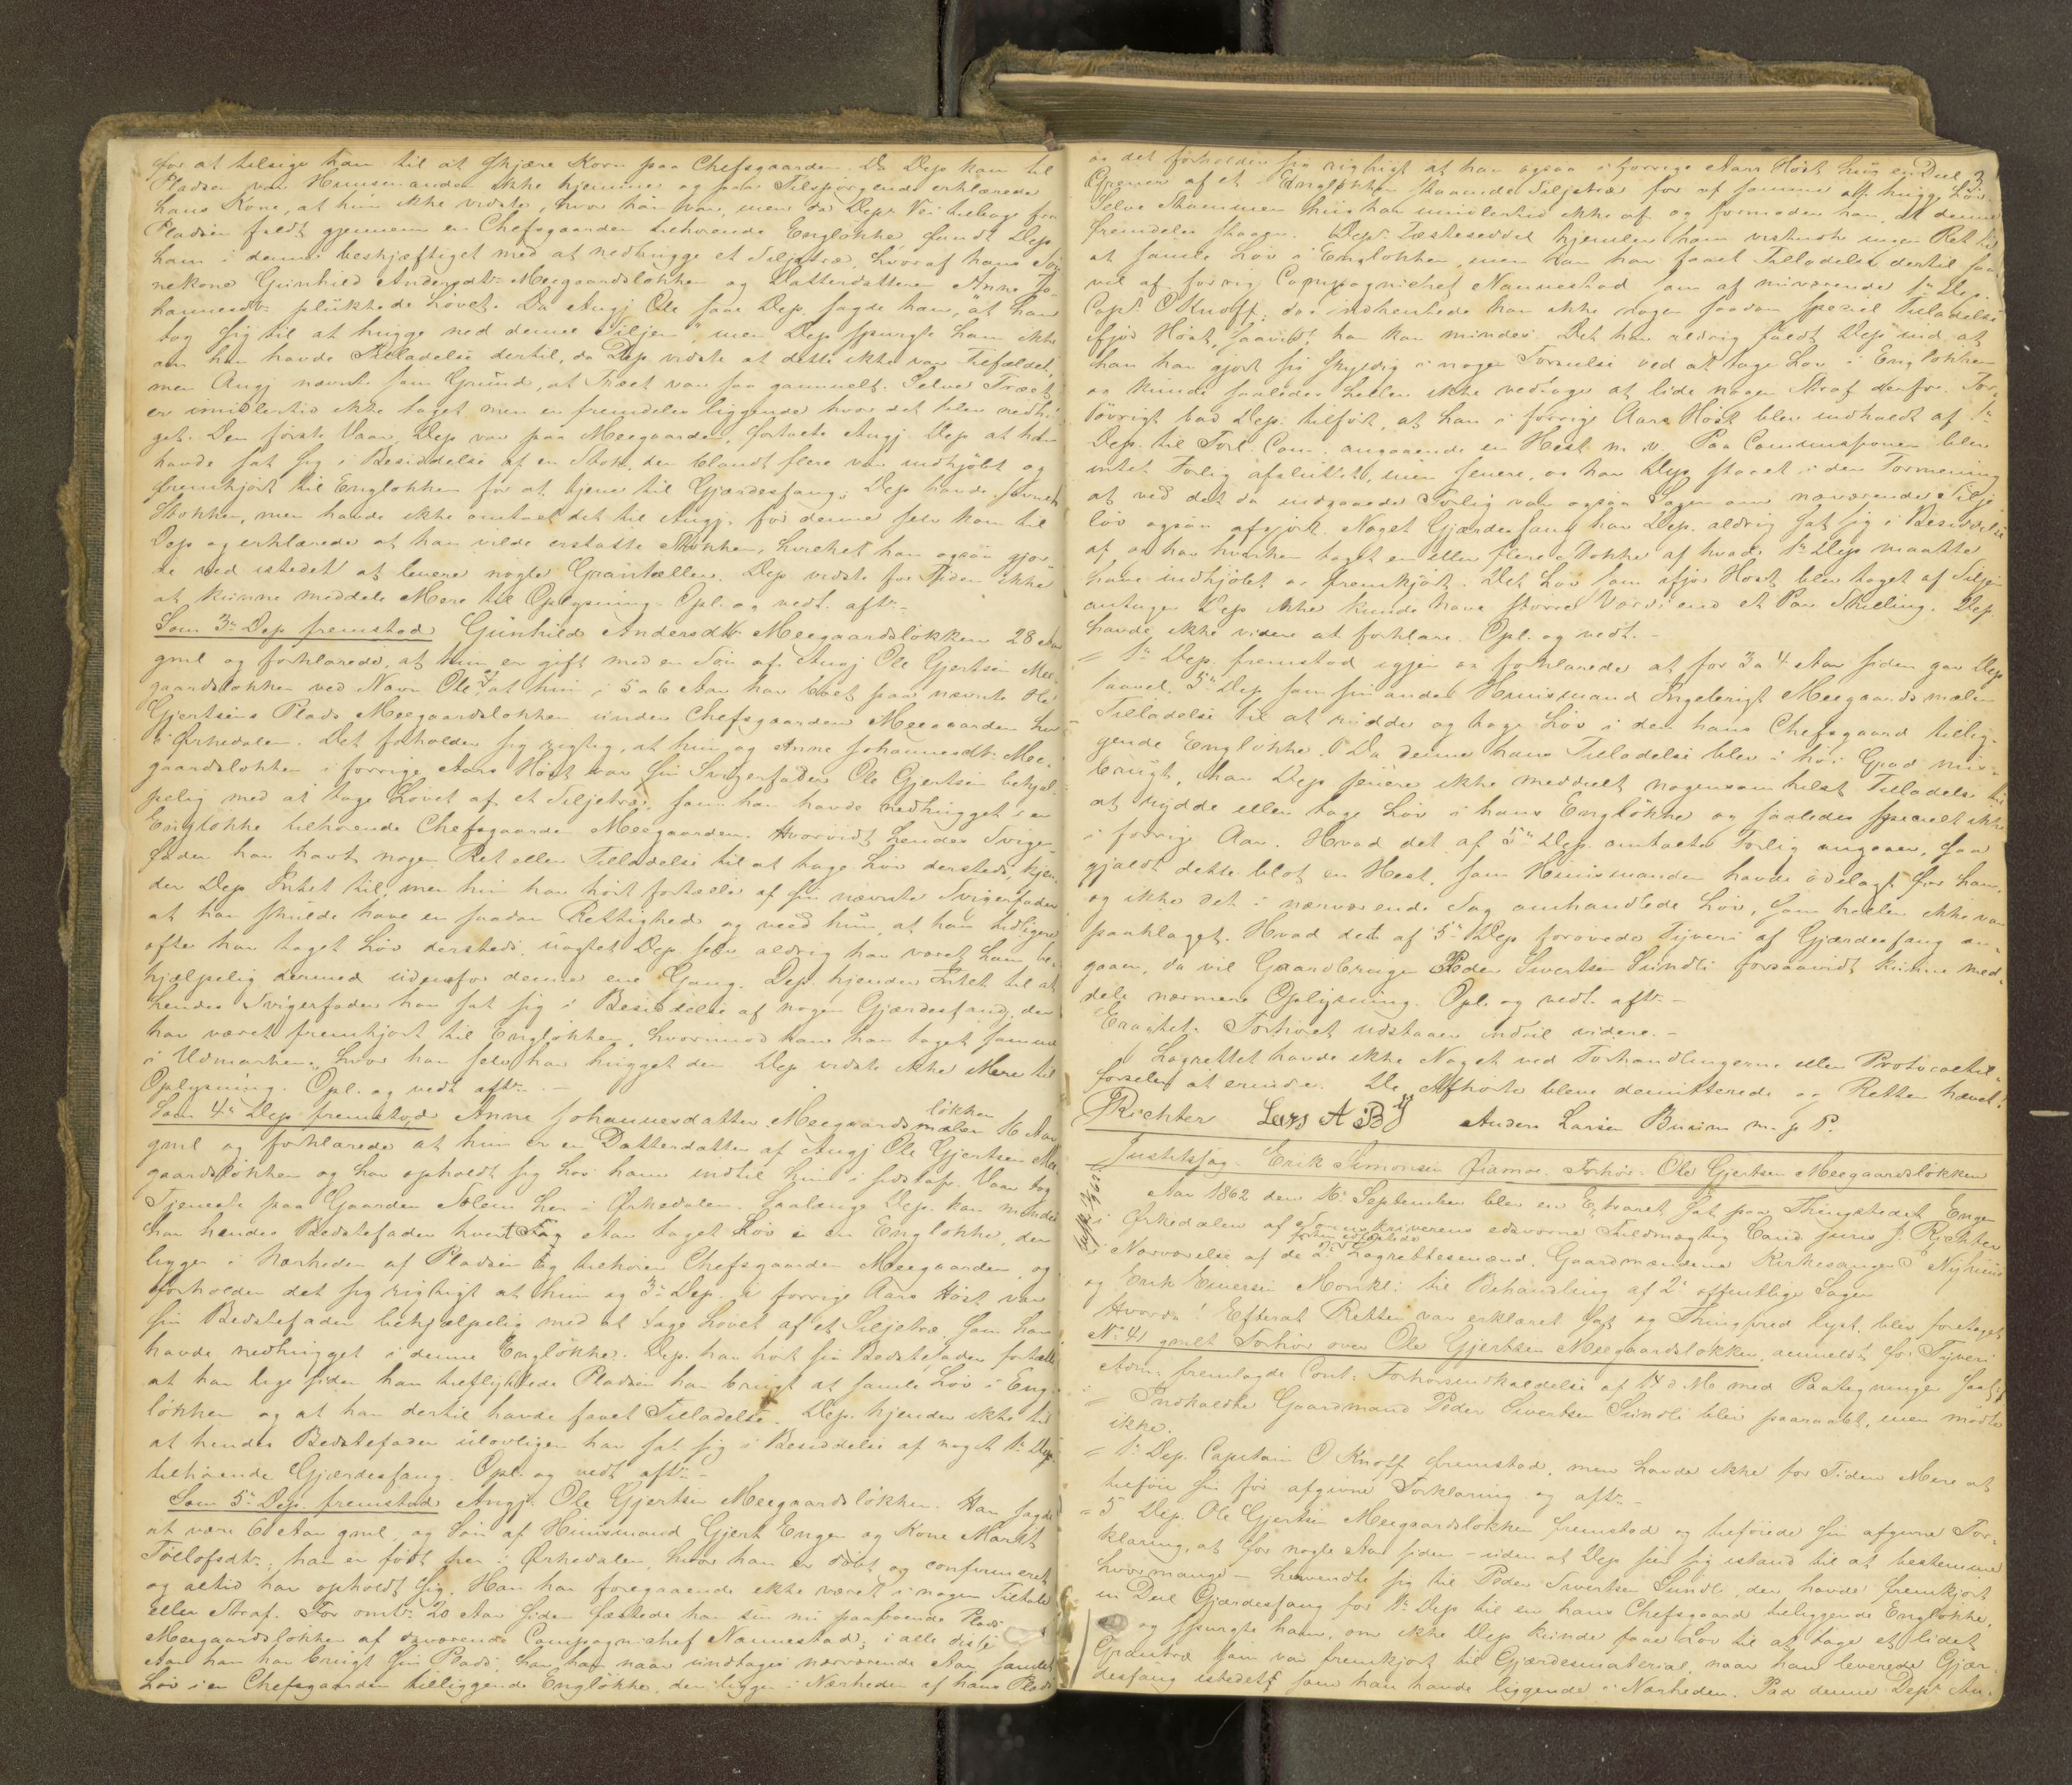 for at tilsige ham til at skjære Korn paa Chefsgaarden. Da Dep kom til
Pladsen var Huusmanden ikke hjemme og paa Tilspørgende erklærede
hans Kone, at hun ikke vidste, hvor han var, men da Dep: Vei tilbage fra
Pladsen faldt gjennem en Chefsgaarden tilhørende Engløkke fandt Dep
ham i denne beskjæftiget med at nedhugge et Siljetræ, hvoraf hans Søn-
nekone Gunhild Andersdtr Meegaardsløkken og Datterdatteren Anne Jo-
hannesdtr plukkede Løvet. Da Angj Ole saae Dep. sagde han, "at han
tog sig til at hugge ned denne Siljen" men Dep spurgte ham ikke
om han havde Tilladelse dertil, da Dep. vidste at dette ikke var Tilfældet,
men Angj nævnte som Grund, at Træet var saa gammelt. Selve Træet
er imidlertid ikke taget men er fremdeles liggende hvor det blev nedhug-
get. Den første Vaar Dep var paa Meegaarden, fortalte Angj. Dep at han
havde sat sig i Besiddelse af en Stok, der blandt flere var indkjøbt og
fremkjørt til Engløkken for at tjene til Gjærdesfang; Dep havde savnet
Stokken, men havde ikke omtalt det til Angj. før denne selv kom til
Dep og erklærede at han vilde erstatte Stokken, hvilket han ogsaa gjor-
de ved istedet at levere nogle Grantæller. Dep vidste for Tiden ikke
at kunne meddele Mere til Oplysning. Opl. og vedt. aftr.-
Som 3die Dep fremstod Gunhild Andersdtr Meegaardsløkken 28 Aar
gml og forklarede, at hun er gift med en Søn af Angj Ole Gjertsen Mee-
gaardsløkken ved Navn Ole, at hun i 5 a 6 Aar har boet paa nævnte Ole
Gjertsens Plads Meegaardsløkken under Chefsgaarden Meegaarden her
i Ørkedalen. Det forholder sig rigtig, at hun og Anne Johannesdtr Mee-
gaardsløkken i forrige Aars Høst var sin Svigerfader Ole Gjertsen behjæl-
pelig med at tage Løvet af et Siljetræ, som han havde nedhugget i en
Engløkke tilhørende Chefsgaarden Meegaarden. Hvorvidt hendes Sviger-
fader har havt nogen Ret eller Tilladelse til at tage Løv dersteds, kjen-
der Dep Intet til, men hun har hørt fortælle af sin nævnte Svigerfader
at han skulde have en saadan Rettighed og veed hun, at han tidligere
ofte har taget Løv dersteds uagtet Dep selv aldrig har været ham be-
hjælpelig dermed udenfor denne ene Gang. Dep. kjender Intet til at
hendes Svigerfader har sat sig i Besiddelse af nogen Gjærdesfang, der
har været fremkjørt til Engløkken, hvorimod han har taget saadant
i Udmarken, hvor han selv har hugget den. Dep vidste ikke Mere til
Oplysning. Opl. og vedt aftr.-
Som 4de Dep fremstod Anne Johannesdatter Meegaardsløkken 16 Aar
gml og forklarede at hun er en Datterdatter af Angj Ole Gjertsen Mee-
gaardsløkken og har opholdt sig hos ham indtil hun i sidstaf. Vaar tog
Tjeneste paa Gaarden Solem her i Ørkedalen. Saalænge Dep. kan mindes
har hendes Bedstefader hvert Aar taget Løv i en Engløkke, der
ligger i Nærheden af Pladsen og tilhører Chefsgaarden Meegaarden, og
forholder det sig rigtigt at hun og 3die Dep. i forrige Aars Høst var
sin Bedstefader behjælpelig med at tage Løvet af et Siljetræ, som han
havde nedhugget i denne Engløkke. Dep. har hørt sin Bedstefader fortælle
at han lige siden han tilflyttede Pladsen har brugt at samle Løv i Eng-
løkken og at han dertil havde faaet Tilladelse. Dep. kjender ikke til
at hendes Bedstefader ulovligen har sat sig i Besiddelse af noget 1ste Dep
tilhørende Gjærdesfang. Opl. og vedt aftr.-
Som 5te Dep. fremstod Angj. Ole Gjertsen Meegaardsløkken. Han sagde
at være 61 Aar gml, og Søn af Huusmand Gjert Engen og Kone Marit
Tollofsdtr; han er født her i Ørkedalen, hvor han er døbt og confirmeret
og altid har opholdt sig. Han har foregaaende ikke været i nogen Tiltale
eller Straf. For omtr. 20 Aar siden fæstede han sin nu paaboende Plads
Meegaardsløkken af daværende Compagnichef Nannestad; i alle disse
Aar han har brugt sin Plads, har han naar undtages nærværende Aar samlet
Løv i en Chefsgaarden tilliggende Engløkke, der ligger i Nærheden af hans Plads
3
og det forholder sig rigtigt at han ogsaa i forrige Aars Høst hug en Deel
Grener af et i Engløkken staaende Siljetræ for af samme at hugge Løv.
Selve Stammen hug han imidlertid ikke af og formoder han, at denne
fremdeles staaer. Dep: Fæsteseddel hjemler ham vistnok ingen Ret til
at samle Løv i Engløkken, men han har faaet Tilladelse dertil saa-
vel af forrig Compagnichef Nannestad som af nuværende 1ste Dep.
Capt. O Knoff; dog indhentede han ikke nogen saadan speciel Tilladelse
ifjor Høst, saavidt han kan mindes. Det har aldrig faldt Dep ind, at
han har gjort sig skyldig i nogen Forseelse ved at tage Løv i Engløkken
og kunde saaledes heller ikke vedtage at lide nogen Straf derfor. For-
øvrigt bad Dep. tilført, at han i forrige Aars Høst blev indkaldt af 1ste
Dep. til Forl. Com. angaaende en Hest m. v. Paa Commissionen blev
intet Forlig afsluttet, men senere, og har Dep staaet i den Formening
at ved det da indgaaede Forlig var ogsaa Sagen om nærværende Silje-
løv ogsaa afgjort. Noget Gjærdesfang har Dep. aldrig sat sig i Besiddelse
af og har hverken taget en eller flere Stokke af hvad 1ste Dep maatte
have indkjøbt og fremkjørt. Det Løv som ifjor Høst blev taget af Siljen
antager Dep ikke kunde have større Værdi end et Par Skilling. Dep.
havde ikke videre at forklare. Opl. og vedt.
= 1ste Dep. fremstod igjen og forklarede at for 3 a 4 Aar siden gav Dep
saavel 5te Dep som sin anden Huusmand Ingebrigt Meegaardsmælen
Tilladelse til at rudde og tage Løv i den hans Chefsgaard tillig-
gende Engløkke. Da denne hans Tilladelse blev i høi Grad mis-
brugt, har Dep senere ikke meddeelt nogensomhelst Tilladelse til
at rydde eller tage Løv i hans Engløkke og saaledes specielt ikke
i forrige Aar. Hvad det af 5te Dep. omtalte Forlig angaaer, saa
gjaldt dette blot en Hest, som Huusmanden havde ødelagt for ham,
og ikke det i nærværende Sag omhandlede Løv, som heller ikke var
paaklaget. Hvad det af 5te Dep forøvede Tyveri af Gjærdesfang an-
gaaer, da vil Gaardbruger Peder Sivertsen Sundli forsaavidt kunne med-
dele nærmere Oplysning. Opl. og vedt. aftr.-
Eragtet: Forhøret udstaaer indtil videre.-
Lagrettet havde ikke Noget ved Forhandlingerne eller Protocoltil-
førselen at erindre. De Afhørte bleve demitterede og Retten hævet.
JRichter Lars A B S Anders Larsen Buaim m. p. P.
Justitssag. Erik Simonsen Forhør. Ole Gjertsen Meegaardsløkken
Aar 1862 den 16. September blev en Extraret sat paa Thingstedet Engen
i Ørkedalen af Sorenskriverens edsvorne Fuldmægtig Cand. juris J. Richter
i Nærværelse af de 2de Lagrettesmænd, Gaardmændene Kirkesanger Nyhuus
og Erik Einersen Monkli til Behandling af 2de offentlige Sager
Hvorda! Efterat Retten var erklæret sat og Thingfred lyst, blev foretaget
No 4 gmlt Forhør over Ole Gjertsen Meegaardsløkken, anmeldt for Tyveri
Adm. fremlagde Cont. Forhørsindkaldelse af 14 d. M. med Paategninger
= Indkaldte Gaardmand Peder Sivertsen Sundli blev paaraabt, men mødte
ikke.
= 1ste Dep. Capitain O Knoff fremstod, men havde ikke for Tiden Mere at
tilføie sin før afgivne Forklaring og aftr.-
= 5te Dep. Ole Gjertsen Meegaardsløkken fremstod og tilføiede sin afgivne For-
klaring, at for nogle Aar siden - uden at Dep seer sig istand til at bestemme
hvormange - henvendte sig til Peder Sivertsen Sundli, der havde fremkjørt
en Deel Gjærdesfang for 1ste Dep til en hans Chefsgaard tilliggende Engløkke,
og spurgte ham, om ikke Dep kunde faae Lov til at tage et lidet
Grantræ som var fremkjørt til Gjærdesmaterial, naar han leverede Gjær-
desfang istedet, som han havde liggende i Nærheden. Paa denne Dep: An-